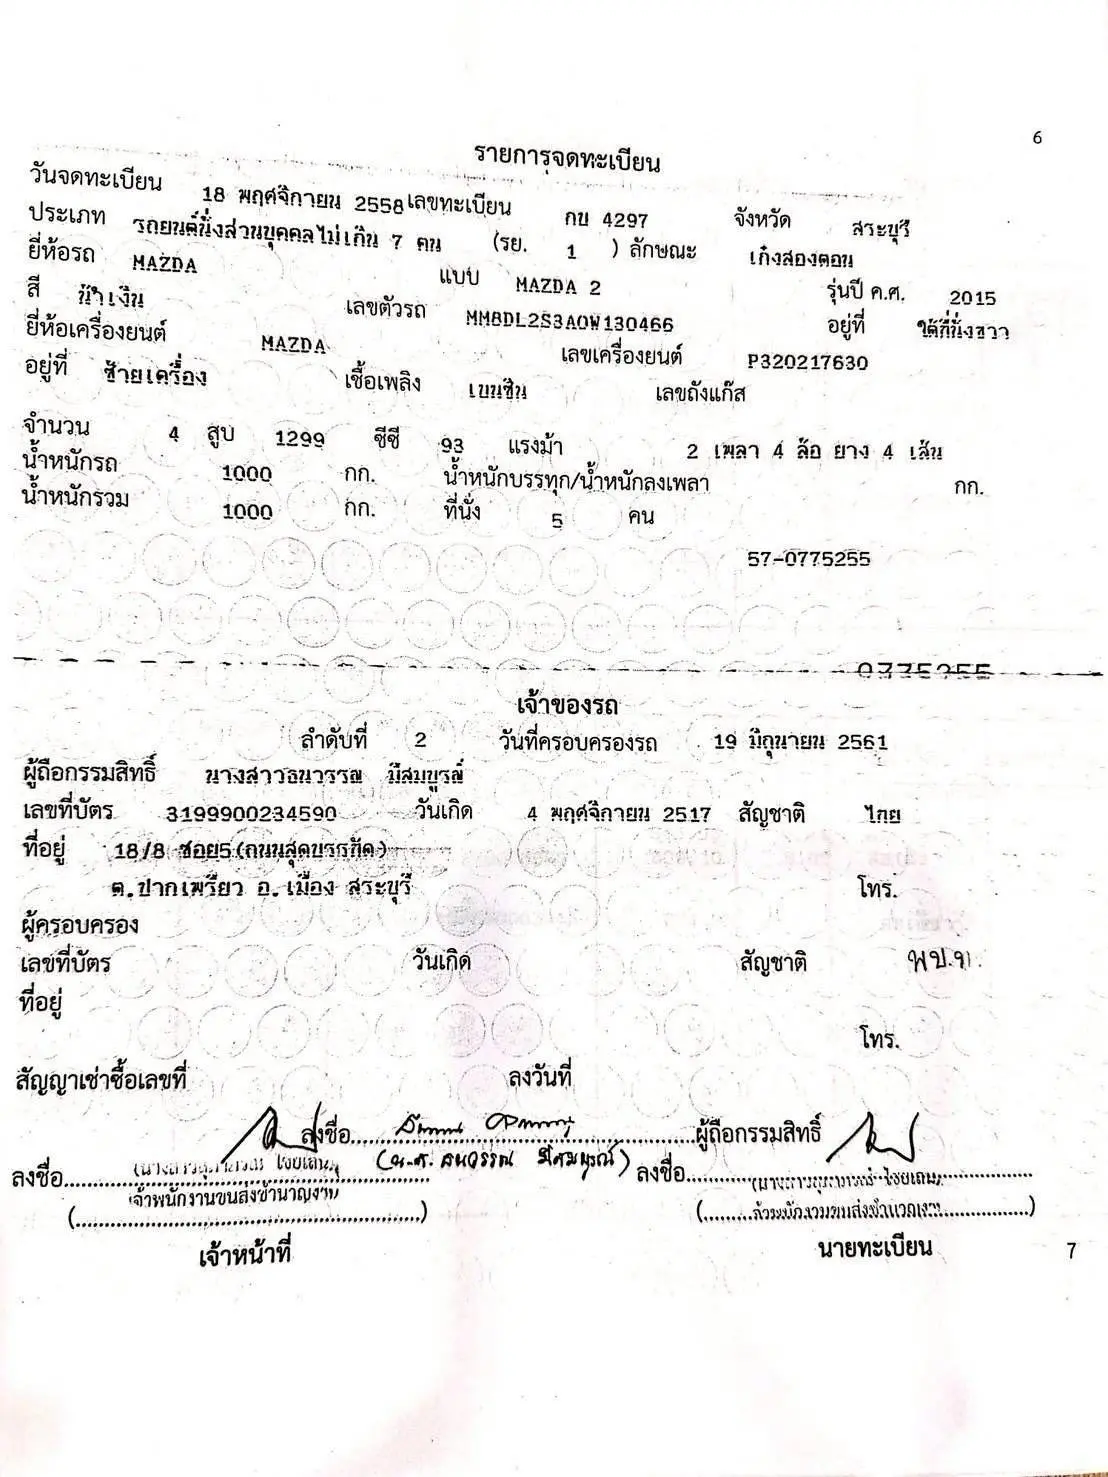 6
รายการจดทะเบียน
วันจดทะเบียน 18 พฤศจิกายน 2558 เลขทะเบียน กบ 4297 จังหวัด สระบุรี
ประเภท รถยนต์นั่งส่วนบุคคลไม่เกิน 7 คน (รย. 1 ) ลักษณะ เก๋งสองตอน
ยี่ห้อรถ MAZDA แบบ MAZDA 2 รุ่นปี ค.ศ. 2015
สี น้ำเงิน เลขตัวรถ MM8DL2S3A0W130466 อยู่ที่ ใต้ที่นั่งขวา
ยี่ห้อเครื่องยนต์ MAZDA เลขเครื่องยนต์ P320217630
อยู่ที่ ซ้ายเครื่อง เชื้อเพลิง เบนซิน เลขถังแก๊ส
จำนวน 4 สูบ 1299 ซีซี 93 แรงม้า 2 เพลา 4 ล้อ ยาง 4 เส้น
น้ำหนักรถ 1000 กก. น้ำหนักบรรทุก/น้ำหนักลงเพลา กก.
น้ำหนักรวม 1000 กก. ที่นั่ง 5 คน
57-0775255
เจ้าของรถ
ลำดับที่ 2 วันที่ครอบครองรถ 19 มิถุนายน 2561
ผู้ถือกรรมสิทธิ์ นางสาวธนวรรณ มีสมบูรณ์
เลขที่บัตร 3199900234590 วันเกิด 4 พฤศจิกายน 2517 สัญชาติ ไทย
ที่อยู่ 18/8 ซอย5(ถนนสุดบรรทัด)
ต.ปากเพรียว อ.เมือง สระบุรี โทร.
ผู้ครอบครอง
เลขที่บัตร วันเกิด สัญชาติ พบ.ท.
ที่อยู่
โทร.
สัญญาเช่าซื้อเลขที่ ลงวันที่
ลงชื่อ ผู้ถือกรรมสิทธิ์
ลงชื่อ (น.ส. ธนวรรณ มีสมบูรณ์) ลงชื่อ
เจ้าพนักงานขนส่งชำนาญงาน เจ้าพนักงานขนส่งชำนาญงาน
เจ้าหน้าที่ นายทะเบียน 7